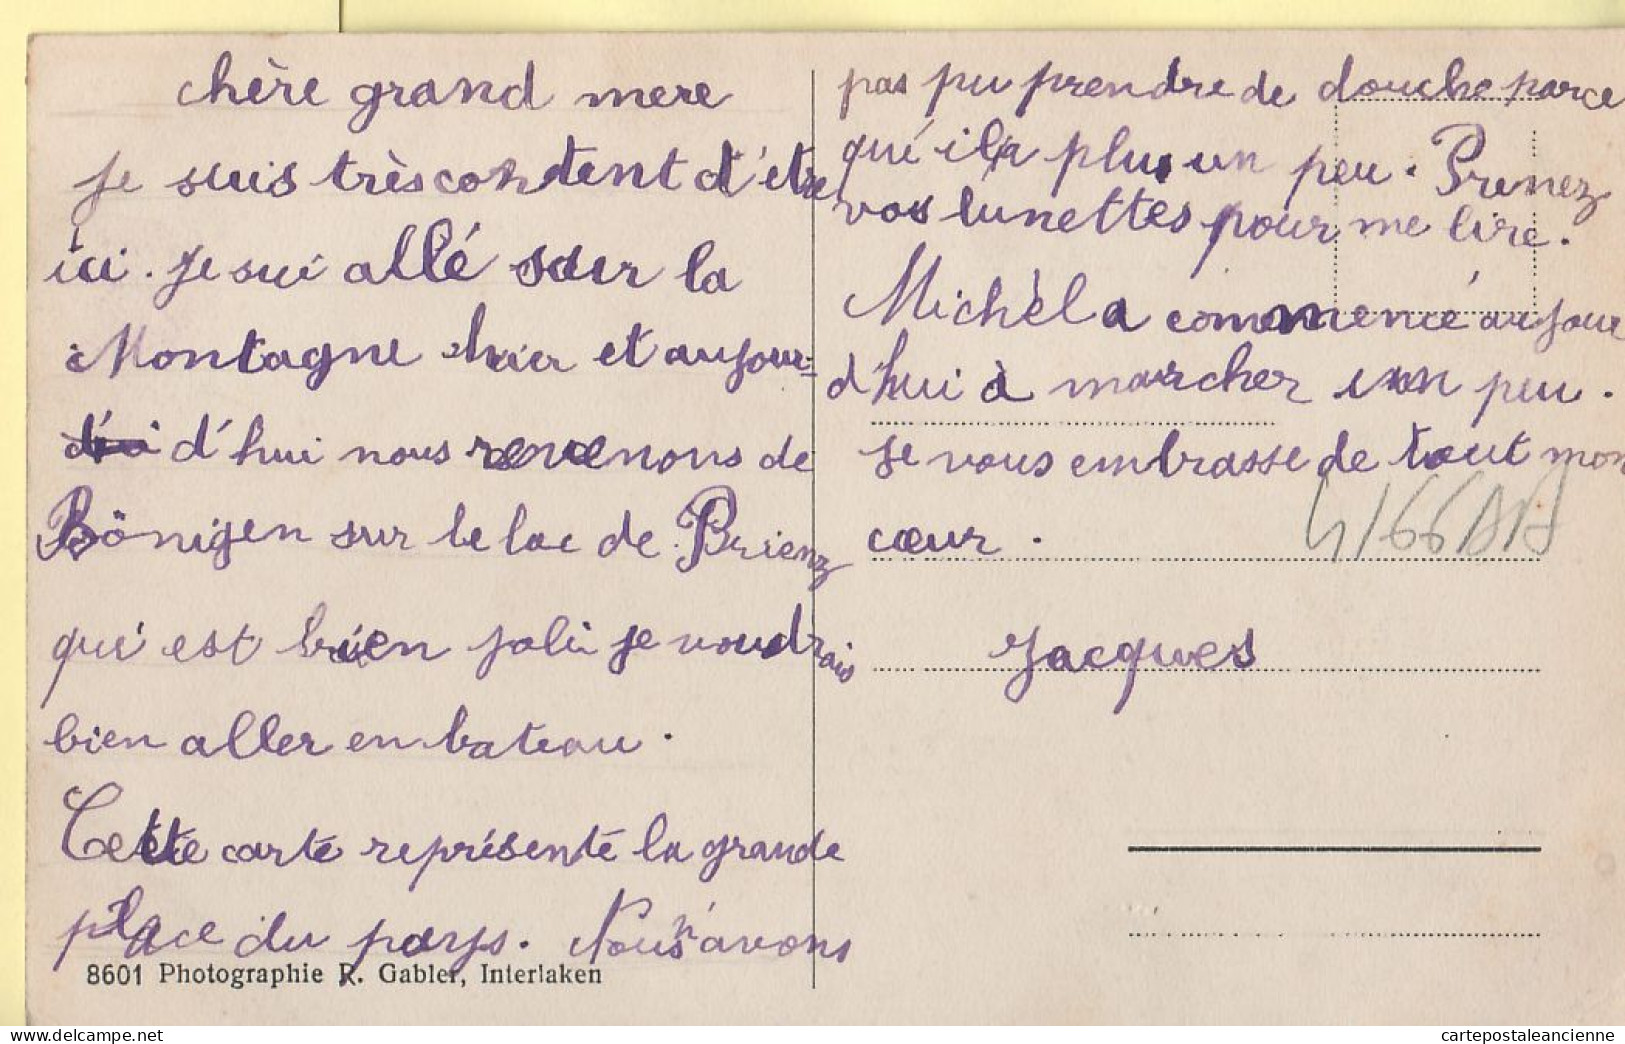 chère grand mere
je suis très contdent d'être
ici. Je sui allé sur la
Montagne hier et aujour=
d'hui nous revenons de
Bönigen sur le lac de Brienz
qui est bien joli je voudrais
bien aller en bateau.
Cette carte représente la grande
place du pays. Nous n'avons
8601 Photographie R. Gabler, Interlaken
pas pu prendre de douche parce
qu'il a plu un peu. Prenez
vos lunettes pour me lire.
Michèl a commencé aujour
d'hui à marcher un peu.
je vous embrasse de tout mon
cœur.
Jacques
www.delcampe.net
cartepostaleancienne